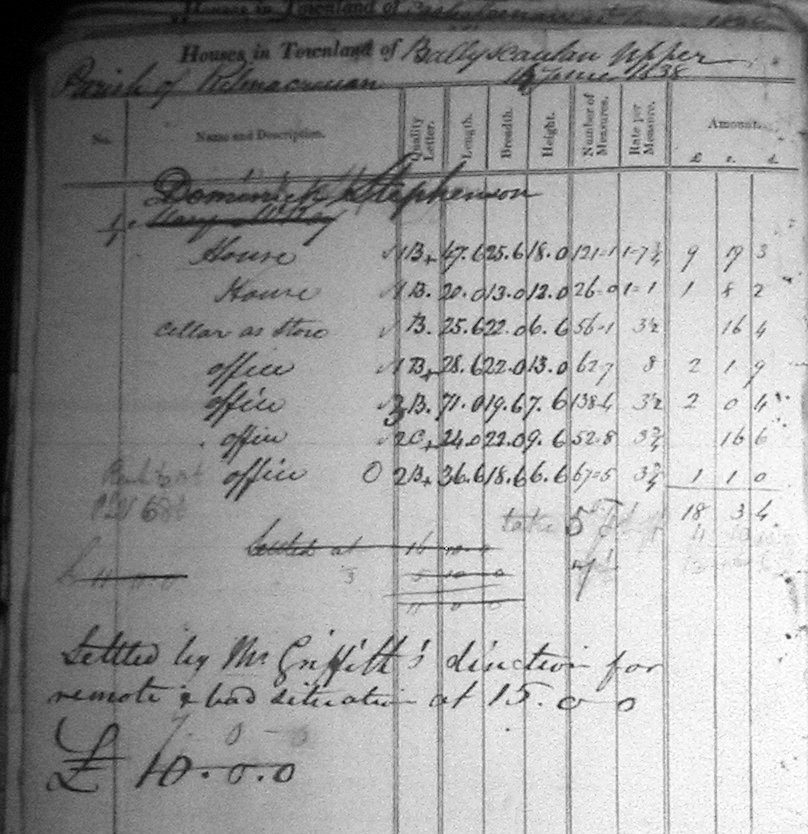 Houses in Townland of Ballyscanlan Upper
Parish of Kilmacrenan 16 June 1838
No. Name and Description. Quality Letter. Length. Breadth. Height. Number of Measures. Rate per Measure. Amount.
£ s. d.
Dominick Stephenson
1
House 1B+ 47.6 25.6 18.0 121-1 1-7¾ 9 19 3
House 1B. 20.0 13.0 12.0 26-0 1-1 1 8 2
Cellar as store B. 25.6 22.0 6.6 56-1 3½ 16 4
office 1B+ 28.6 22.0 13.0 62-7 8 2 1 9
office B. 71.0 19.6 7.6 138-4 3½ 2 0 4
office 2C+ 24.0 22.0 9.6 52-8 3¾ 16 6
office 0 2B+ 36.6 18.6 6.6 67-5 3¾ 1 1 0
18 3 4
take 5
Settled at 16 10 0
5 10 0
11 0 0
Settled by Mr Griffith's direction for
remote & bad situation at 15.0 0
7. 0 - 0
£ 10.0.0